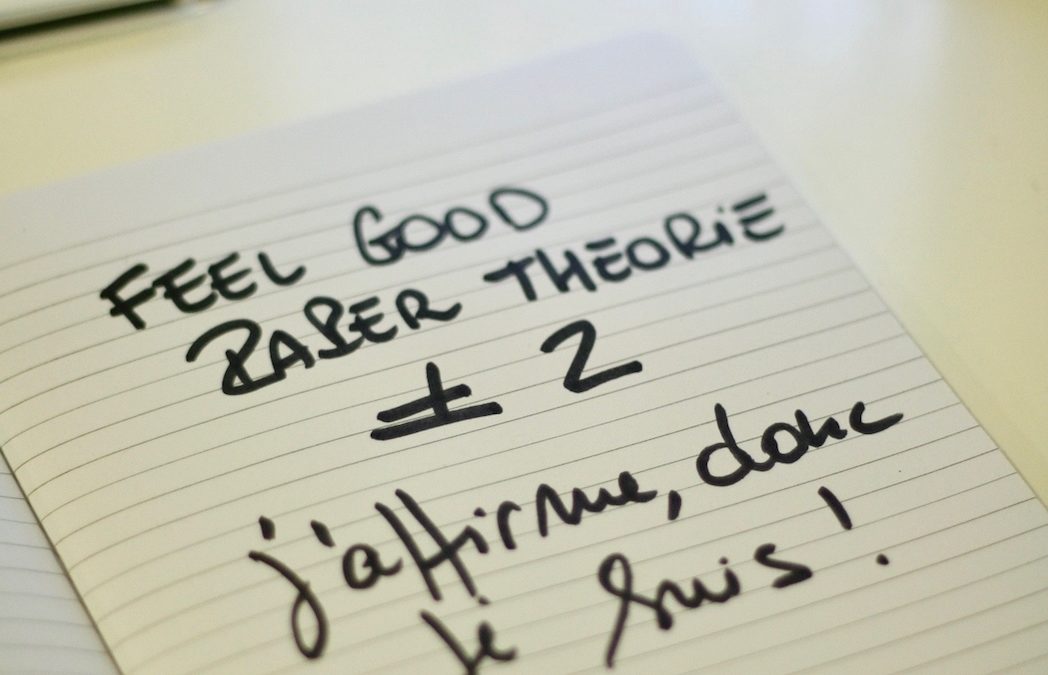 FEEL GOOD
PAPER THEORIE
± 2
j'affirme, donc
je suis !